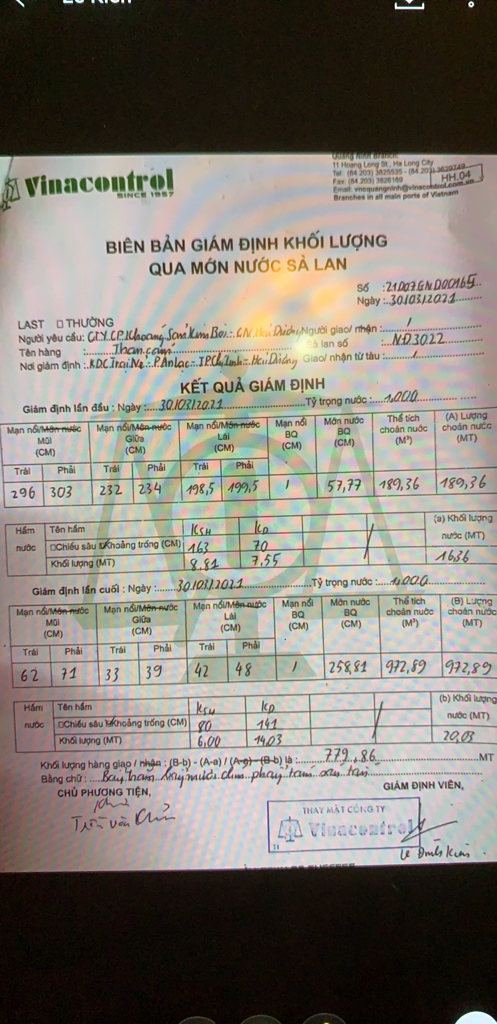 Vinacontrol
SINCE 1957
11 Hoang Long St., Ha Long City
Tel: (84.203) 3825535 - (84.203)
Fax: (84.203) 3826169
Email: vncquangninh@vinacontrol.com.vn
Branches in all main ports of Vietnam
HH.04
BIÊN BẢN GIÁM ĐỊNH KHỐI LƯỢNG
QUA MỚN NƯỚC SÀ LAN
Số :21D07GND00165
Ngày :30/03/2021
LAST □ THƯỜNG
Người yêu cầu: CTY.CP.Khoáng Sản Kim Bôi - CN Hải Dương Người giao/ nhận : /
Tên hàng : Than cám Sà lan số : NĐ3022
Nơi giám định : KDC Trái Nẻ - P.An Lạc - TP.Chí Linh - Hải Dương Giao/ nhận từ tàu : /
KẾT QUẢ GIÁM ĐỊNH
Giám định lần đầu : Ngày : 30/03/2021 Tỷ trọng nước : 1,000
Mạn nổi/Mớn nước Mũi (CM) Mạn nổi/Mớn nước Giữa (CM) Mạn nổi/Mớn nước Lái (CM) Mạn nổi BQ (CM) Mớn nước BQ (CM) Thể tích choán nước (M³) (A) Lượng choán nước (MT)
Trái Phải Trái Phải Trái Phải
296 303 232 234 198,5 199,5 / 57,77 189,36 189,36
Hầm nước Tên hầm KSH KP (a) Khối lượng nước (MT)
□Chiều sâu Khoảng trống (CM) 163 70
Khối lượng (MT) 8,81 7,55 1636
Giám định lần cuối : Ngày : 30/03/2021 Tỷ trọng nước : 1,000
Mạn nổi/Mớn nước Mũi (CM) Mạn nổi/Mớn nước Giữa (CM) Mạn nổi/Mớn nước Lái (CM) Mạn nổi BQ (CM) Mớn nước BQ (CM) Thể tích choán nước (M³) (B) Lượng choán nước (MT)
Trái Phải Trái Phải Trái Phải
62 71 33 39 42 48 / 258,81 972,89 972,89
Hầm nước Tên hầm KSH KP (b) Khối lượng nước (MT)
□Chiều sâu Khoảng trống (CM) 80 141
Khối lượng (MT) 6,00 14,03 20,03
Khối lượng hàng giao / nhận : (B-b) - (A-a) / (A-a) - (B-b) là : 779,86 MT
Bằng chữ : Bảy trăm bảy mươi chín phẩy tám sáu tấn
CHỦ PHƯƠNG TIỆN, GIÁM ĐỊNH VIÊN,
Trần Văn
THAY MẶT CÔNG TY
Vinacontrol
Lê